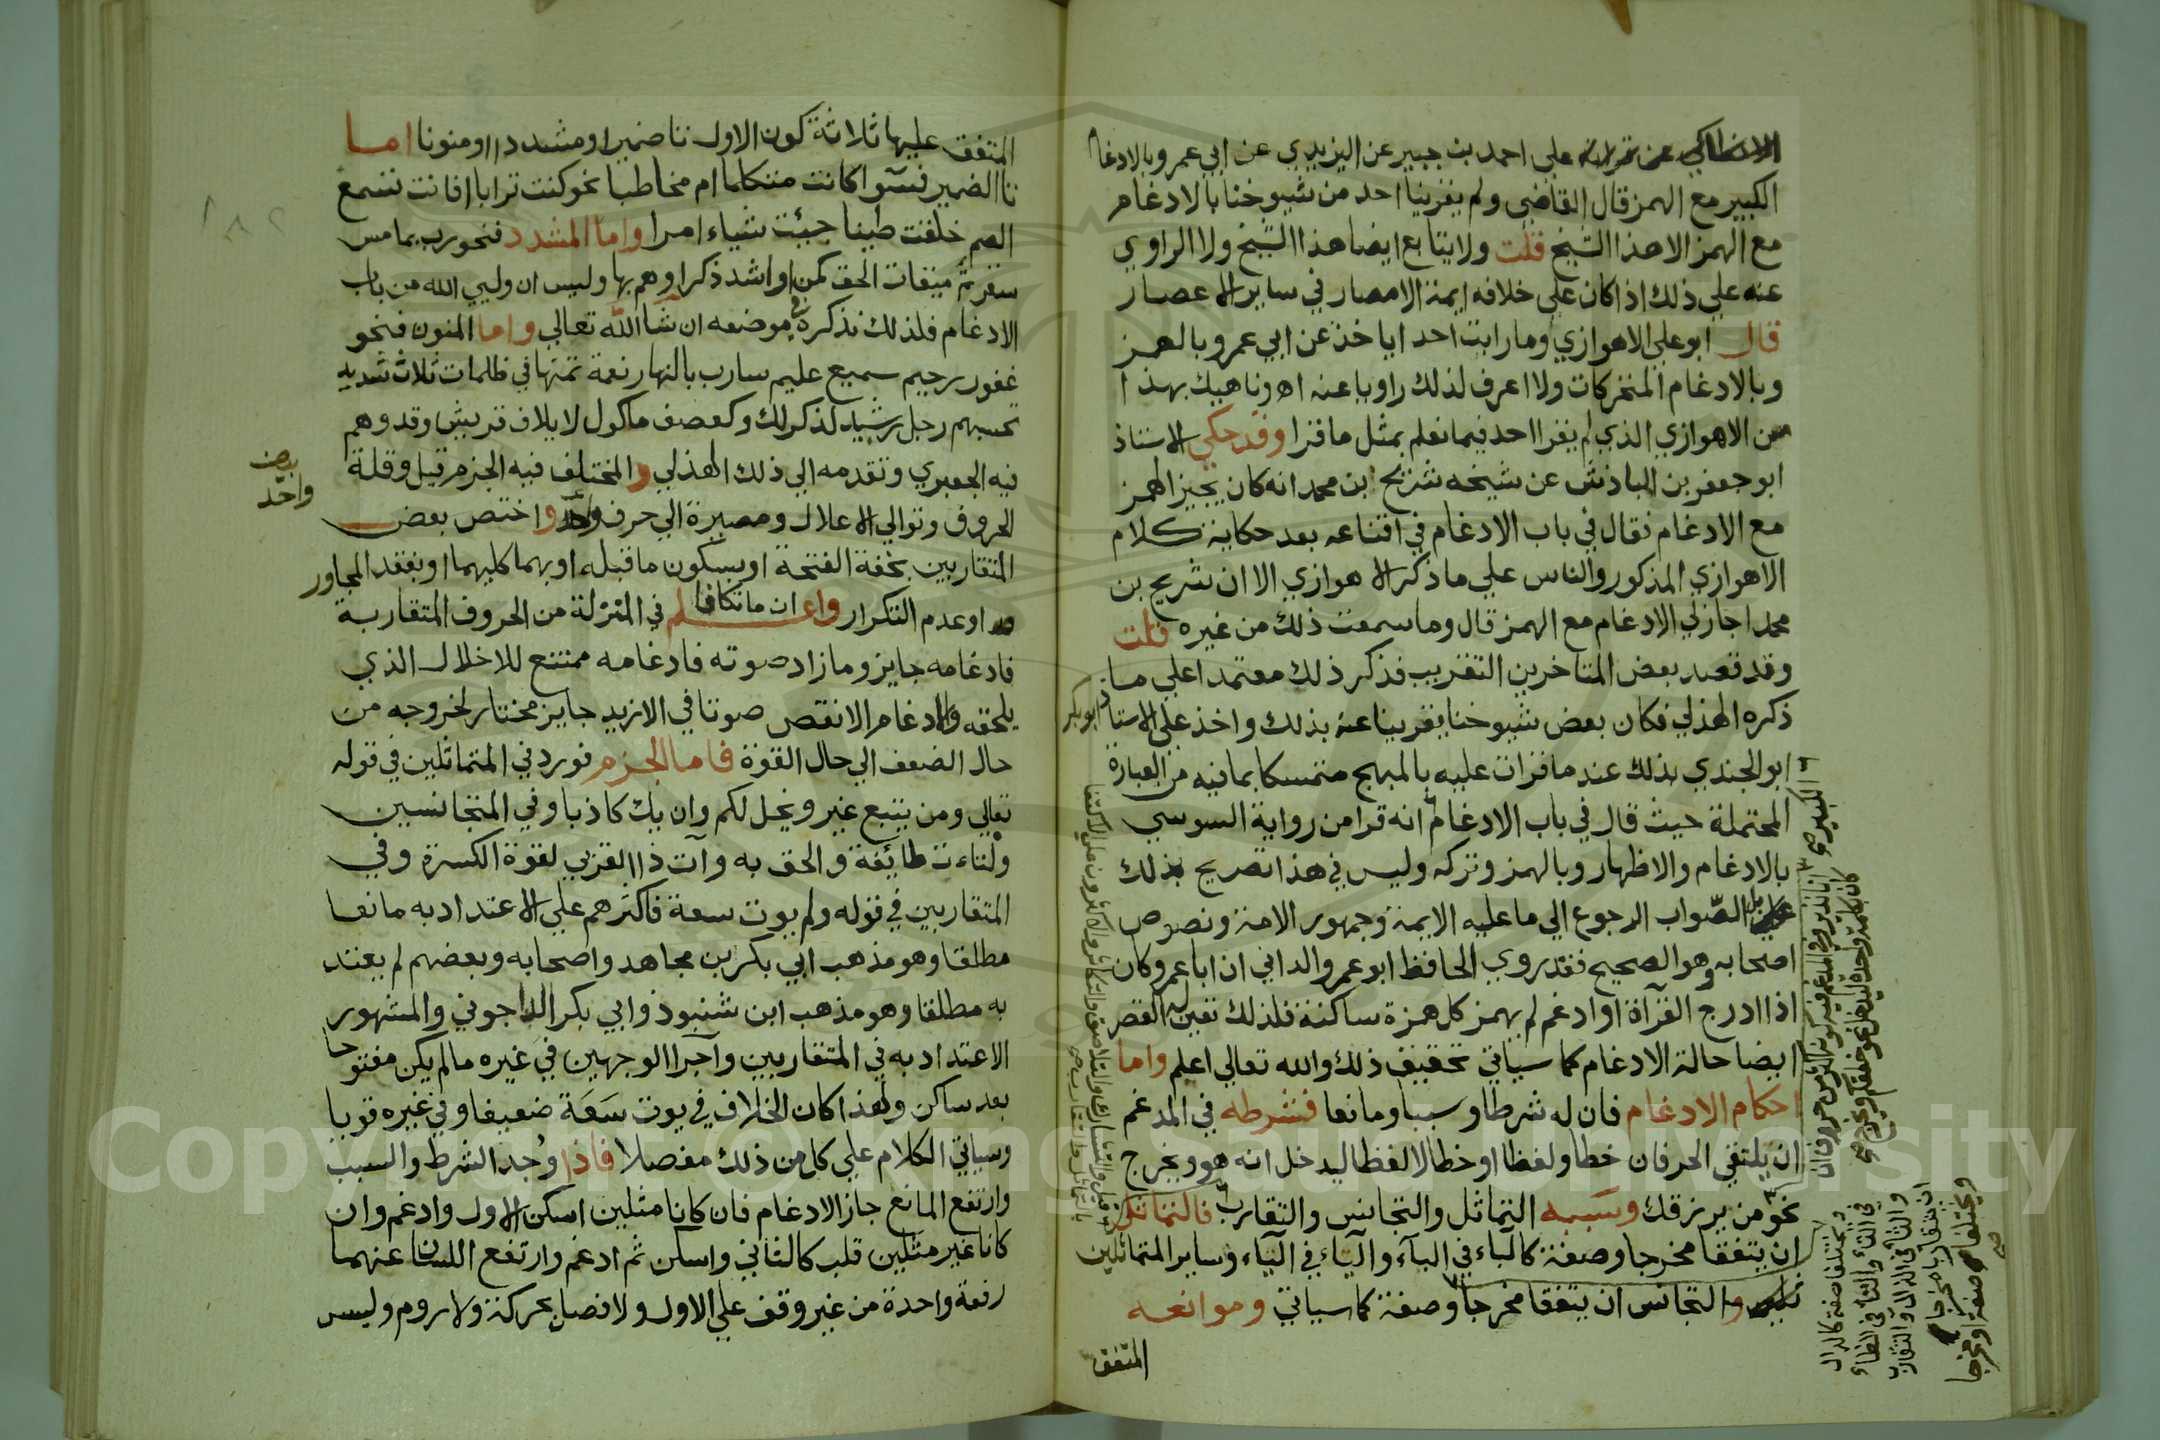 الانطاكي عن قراته علي احمد بن جبير عن اليزيدي عن ابي عمرو بالادغام
الكبير مع الهمز قال القاضي ولم يقرينا احد من شيوخنا بالادغام
مع الهمز الا هذا الشيخ قلت ولا يتابع ايضا هذا الشيخ ولا الراوي
عنه علي ذلك اذ اكان علي خلافه ايمة الامصار في ساير الاعصار
قال ابو علي الاهوازي وما رايت احدا ياخذ عن ابي عمرو بالهمز
وبالادغام المتحركات ولا اعرف لذلك راويا عنه اه وناهيك بهذا
من الاهوازي الذي لم يقرا احد فيما نعلم بمثل ما قرا وقد حكي الاستاذ
ابو جعفر بن الباذش عن شيخه شريح ابن محمد انه كان يجيز الهمز
مع الادغام فقال في باب الادغام في اقناعه بعد حكاية كلام
الاهوازي المذكور والناس علي ما ذكر الاهوازي الا ان شريح بن
محمد اجاز لي الادغام مع الهمز قال وما سمعت ذلك من غيره قلت
وقد قصد بعض المتاخرين التغريب فذكر ذلك معتمدا علي ما
ذكره الهذلي فكان بعض شيوخنا يقرينا عنه بذلك واخذ علي الاستاذ ابو بكر
ابو الجندي بذلك عند ما قرات عليه بالمبهج متمسكا بما فيه من العبارة
المحتملة حيث قال في باب الادغام انه قرا من رواية السوسي
بالادغام والاظهار وبالهمز وتركه وليس في هذا تصريح بذلك
الصواب الرجوع الي ما عليه الايمة وجمهور الامة ونصوص
اصحابه وهو الصحيح فقد روي الحافظ ابو عمرو الداني ان ابا عمرو كان
اذا ادرج القرآة او ادغم لم يهمز كل همزة ساكنة فلذلك تعين له القصر
ايضا حالة الادغام كما سياتي تحقيق ذلك والله تعالي اعلم واما
احكام الادغام فان له شرطا وسببا ومانعا فشرطه في المدغم
ان يلتقي الحرفان خطا ولفظا او خطا لا لفظا ليدخل انه هو ويخرج
نحو من يرزقك وسببه التماثل والتجانس والتقارب فالتماثل
ان يتفقا مخرجا وصفة كالبآء في البآء واليآء في اليآء وساير المتماثلين
والتجانس ان يتفقا مخرجا وصفة كما سياتي وموانعه
المتفق
المتفق عليها ثلاثة كون الاول تا ضمير او مشددا او منونا اما
تا الضمير فسوا كانت متكلما ام مخاطبا نحو كنت ترابا افانت تسمع
الصم خلقت طينا جيئت شياء امرا واما المشدد فنحو رب بما مس
سقر تم ميقات الحق كمن او اشد ذكرا وهم بها وليس ان وليي الله من باب
الادغام فلذلك نذكره في موضعه ان شا الله تعالي واما المنون فنحو
غفور رحيم سميع عليم سارب بالنهار نعمة تمنها في ظلمات ثلاث شديد
تحسبهم رجل رشيد لذكر لك وكعصف ماكول لايلاف قريش وقد وهم
فيه الجعبري وتقدمه الي ذلك الهذلي والمختلف فيه الجزم قيل وقلة
الحروف وتوالي الاعلال ومصيرة الي حرف واحد واختص بعض
المتقاربين بخفة الفتحة او بسكون ما قبله او بهما كليهما او بفقد المجاور
او عدم التكرار واعلم ان ما تكافا في المنزلة من الحروف المتقاربة
فادغامه جايز وما زاد صوته فادغامه ممتنع للاخلال الذي
يلحقه وادغام الانقص صوتا في الازيد جايز مختار لخروجه من
حال الضعف الي حال القوة فاما الجزم فورد في المتماثلين في قوله
تعالي ومن يتبع غير ويخل لكم وان يك كاذبا وفي المتجانسين
ولتاءت طائفة والحق به وآت ذا القربي لقوة الكسرة وفي
المتقاربين في قوله ولم يوت سعة فاكثرهم علي الاعتداد به مانعا
مطلقا وهو مذهب ابي بكر بن مجاهد واصحابه وبعضهم لم يعتد
به مطلقا وهو مذهب ابن شنبوذ وابي بكر الداجوني والمشهور
الاعتداد به في المتقاربين وآجرا الوجهين في غيره ما لم يكن مفتوحا
بعد ساكن ولهذا كان الخلاف في يوت سعة ضعيفا وفي غيره قويا
وسياتي الكلام علي كل من ذلك مفصلا فاذا وجد الشرط والسبب
وارتفع المانع جاز الادغام فان كانا مثلين اسكن الاول وادغم وان
كانا غير مثلين قلب كالثاني واسكن ثم ادغم وارتفع اللسان عنهما
رفعة واحدة من غير وقف علي الاول ولا فصل بحركة ولا روم وليس
واحد